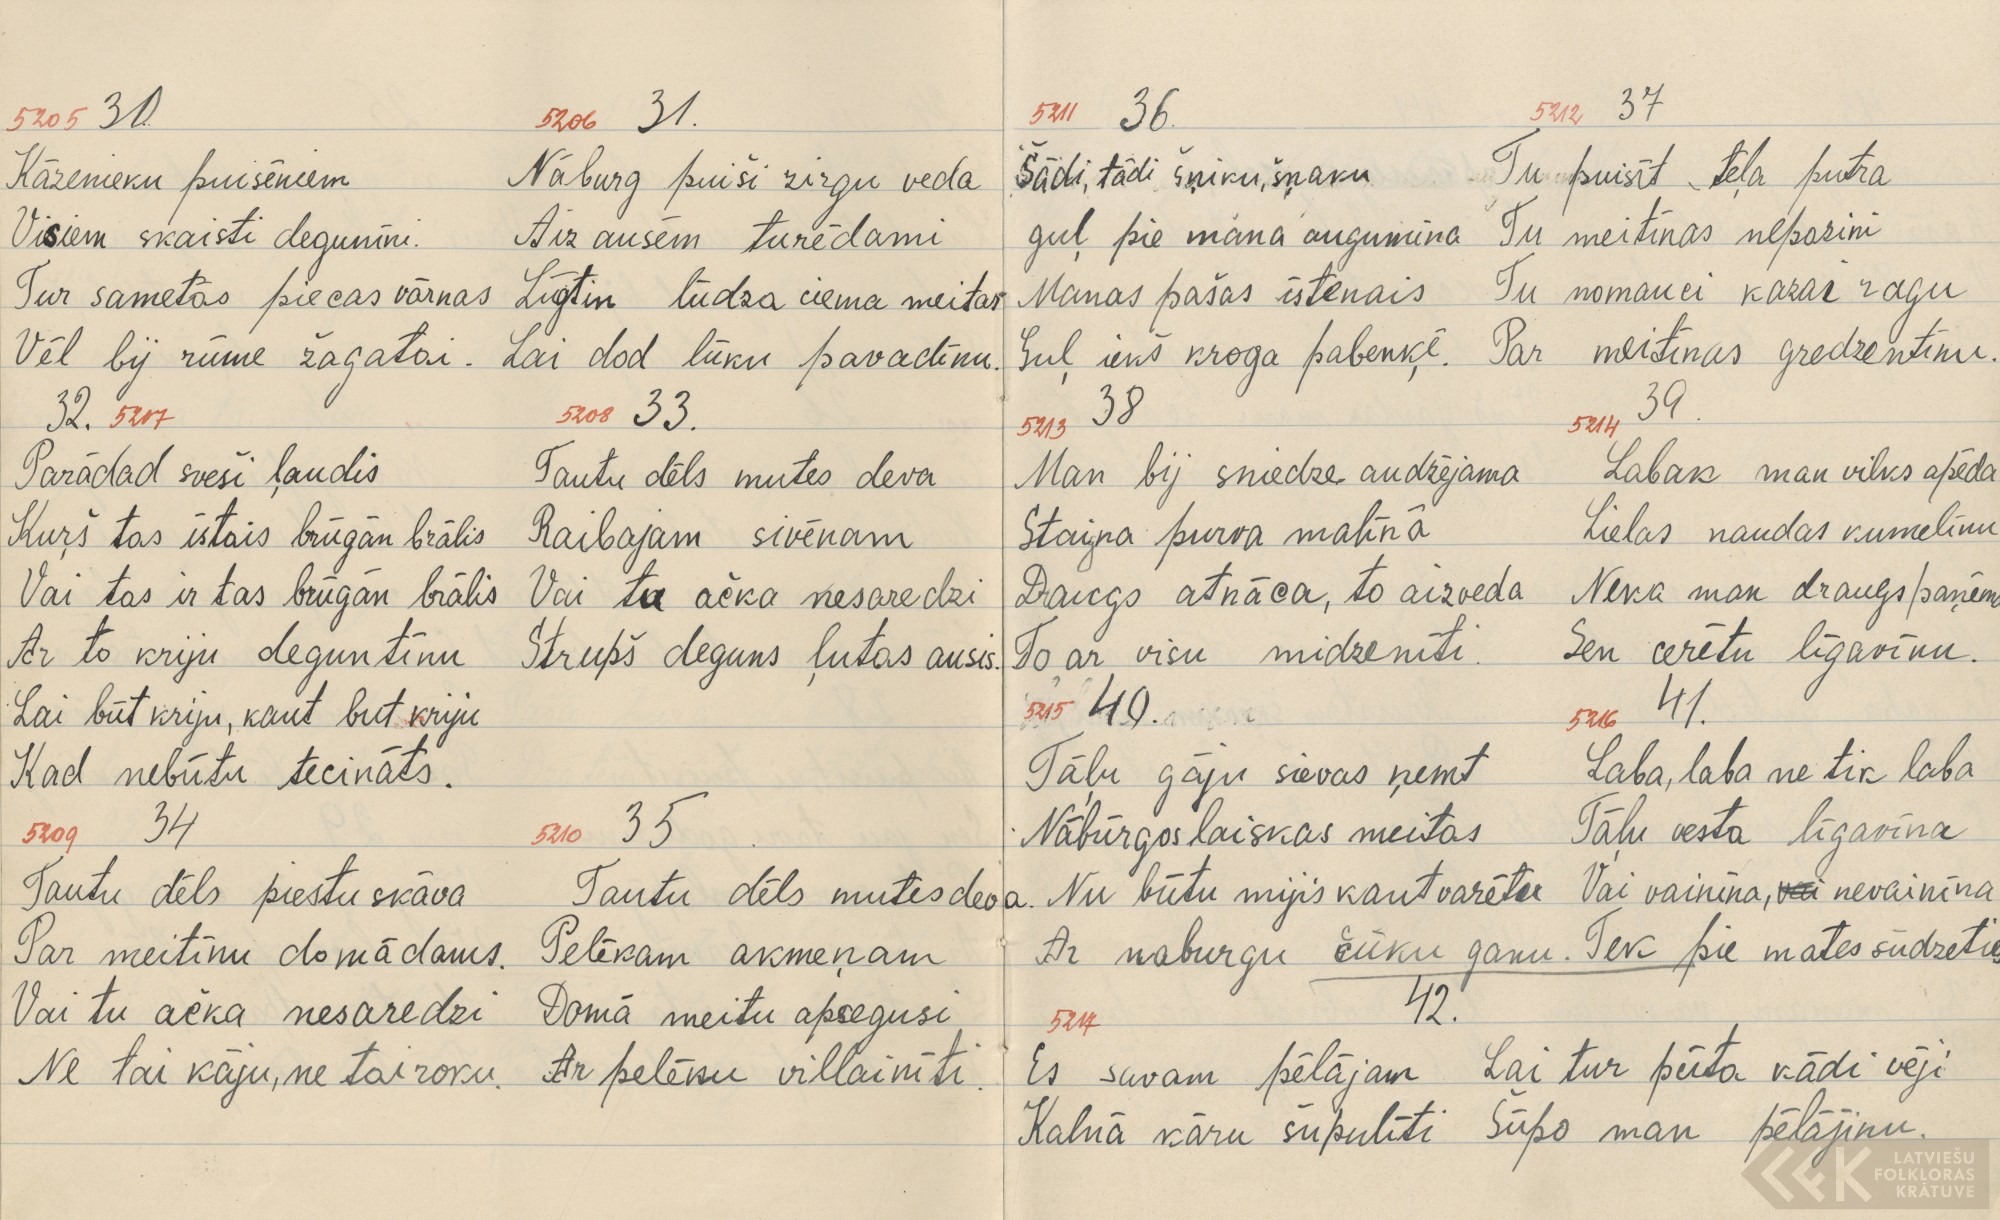 5205 30.
Kāzenieku puisēniem
Visiem skaisti degunīni.
Tur sametās piecas vārnas
Vēl bij rūme žagatai.
5206 31.
Nāburg puiši zirgu veda
Aiz ausēm turēdami
Līgtin lūdza ciema meitas
Lai dod lūku pavadīnu.
32. 5207
Parādad sveši ļaudis
Kuŗš tas īstais brūgān brālis
Vai tas ir tas brūgān brālis
Ar to kriju deguntīnu
Lai būt kriju, kaut but kriju
Kad nebūtu tecināts.
5208 33.
Tautu dēls mutes deva
Raibajam sivēnam
Vai tu ačka nesaredzi
Strupš deguns ļutas ausis.
5209 34
Tautu dēls piestu skāva
Par meitīnu domādams.
Vai tu ačka nesaredzi
Ne tai kāju, ne tai roku.
5210 35
Tautu dēls mutes deva.
Pelēkam akmeņam
Domā meitu apsegusi
Ar pelēku villainīti.
5211 36.
Šādi, tādi šņiku, šņaku
guļ pie māna augumīna
Manas pašas īstenais
Guļ iekš kroga pabenķē.
5212 37
Tu puisīt teļa putra
Tu meitīnas nepazini
Tu nomauci kazai ragu
Par meitīnas gredzentīnu.
5213 38
Man bij sniedze audzējama
Staigna purva malīnā
Draugs atnāca, to aizveda
To ar visu midzenīti.
5214 39.
Labak man vilks apēda
Lielas naudas kumelīnu
Neka man draugs paņēma
Sen cerētu līgavīnu.
5215 40.
Tāļu gāju sievas ņemt
Nābūrgos laiskas meitas
Nu būtu mijis kaut varētu
Ar naburgu cūku ganu.
5216 41.
Laba, laba ne tik laba
Tāļu vesta līgavīna
Vai vainīna, vai nevainīna
Tek pie mates sūdzeties
5217 42.
Es savam pēlājam
Kalnā kāru šūpulīti
Lai tur pūta kādi vēji
Šūpo man pēlājinu.
LATVIEŠU
FOLKLORAS
KRĀTUVE